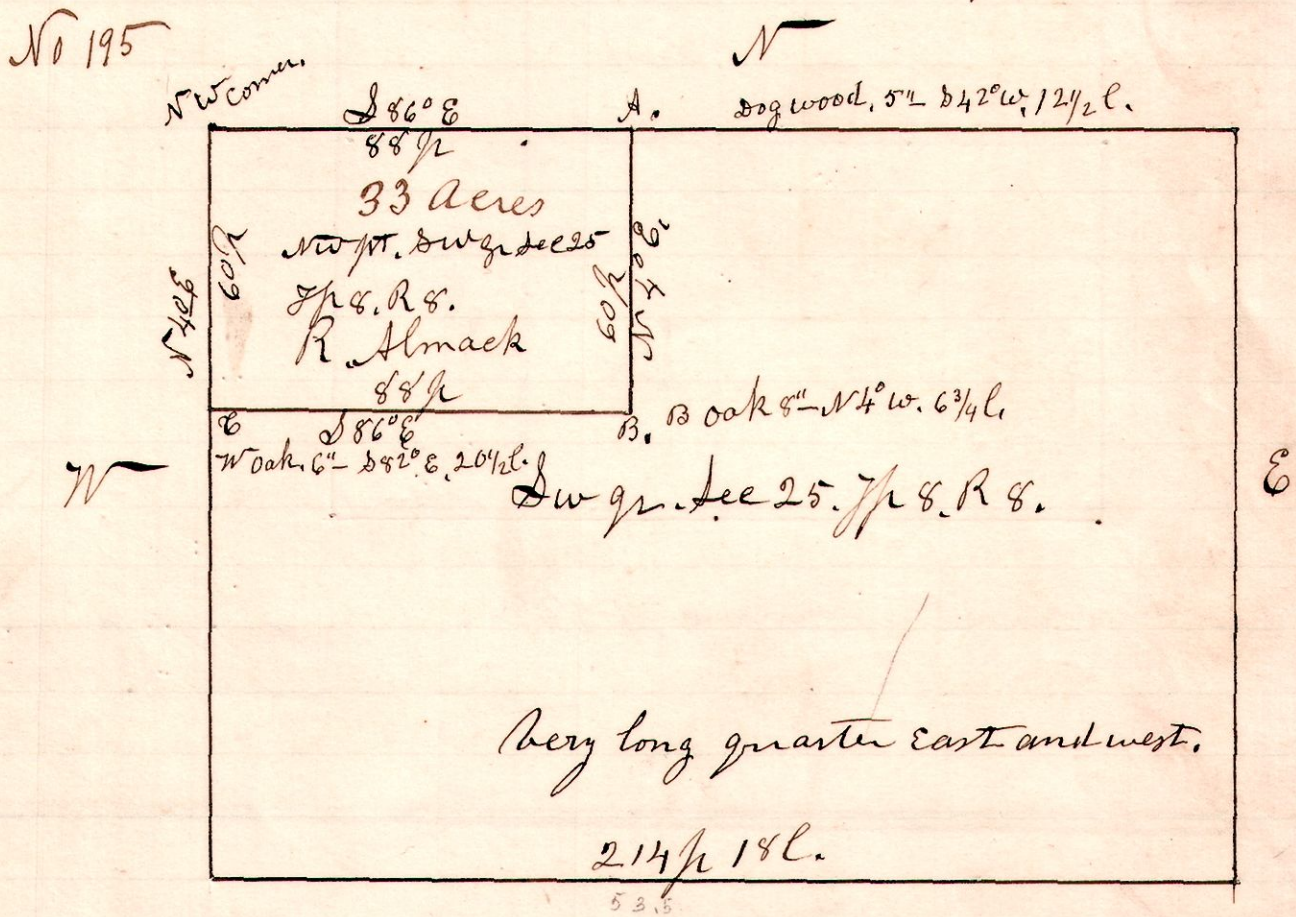 No 195
N
NW corner.
S 86° E
A.
Dogwood. 5" S 42° W. 12 1/2 l.
88 p
33 Acres
NW pt. SW qr Sec 25
Tp 8. R 8.
R. Almack
88 p
60 p
N 4° E
60 p
N 4° E
C
S 86° E
B. B oak 8" - N 4° W. 6 3/4 l.
W oak. 6" - S 82° E. 20 1/2 l.
W
E
SW qr. Sec 25. Tp 8. R 8.
Very long quarter East and west.
214 p 18 l.
53.5